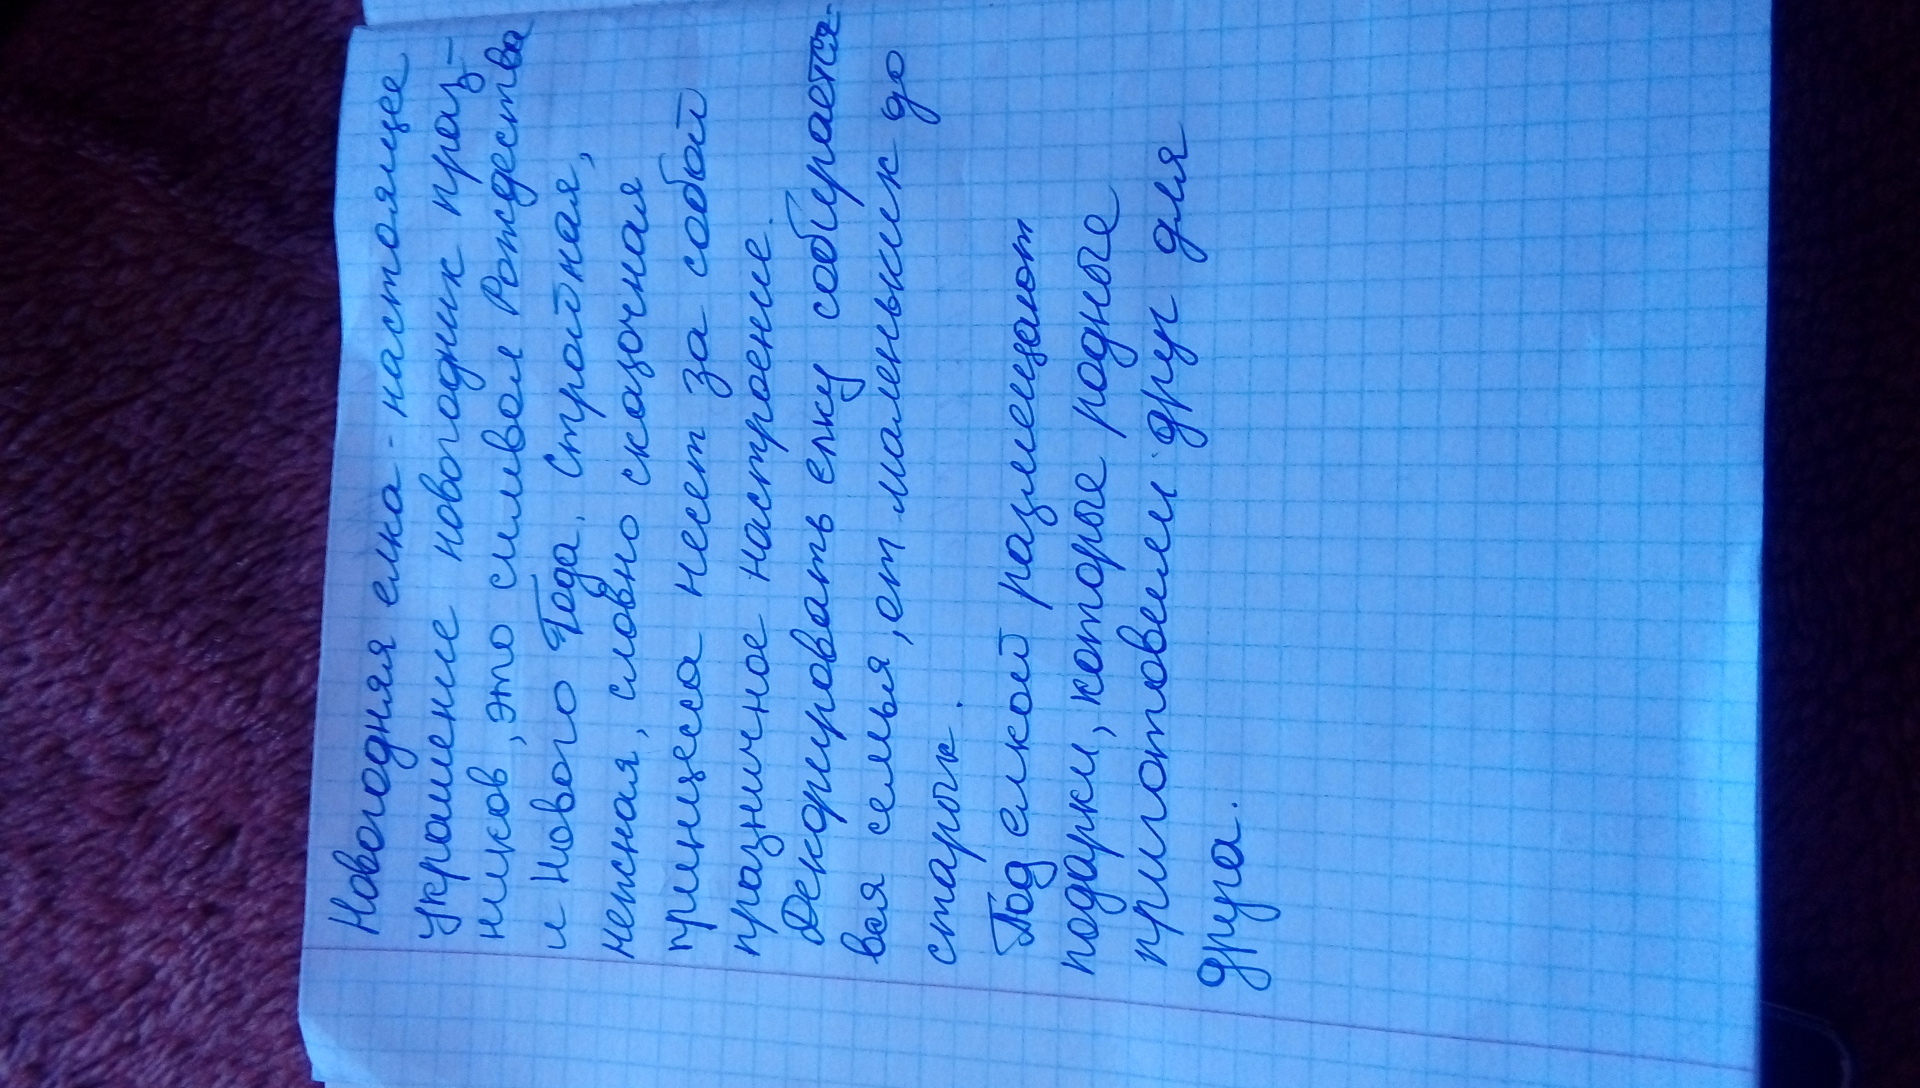 Новогодняя елка - настоящее
украшение новогодних праз-
ников, это символ Рождества
и Нового Года. Стройная,
нежная, словно сказочная
принцесса несет за собой
празничное настроение.
Декорировать елку собирается
вся семья, от маленьких до
старых.
Под елкой размещают
подарки, которые родные
приготовели друг для
друга.